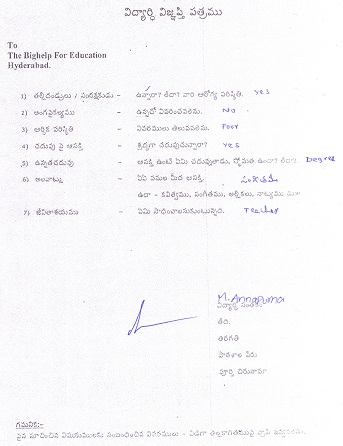 విద్యార్థి విజ్ఞప్తి పత్రము
To
The Bighelp For Education
Hyderabad.
1) తల్లిదండ్రులు / సంరక్షకుడు - ఉన్నారా? లేదా? వారి ఆరోగ్య పరిస్థితి. Yes
2) అంగవైకల్యము - ఉన్నదో వివరించవలెను. NO
3) ఆర్థిక పరిస్థితి - వివరములు తెలుపవలెను. Poor
4) చదువు పై ఆసక్తి - శ్రద్ధగా చదువుచున్నారా? Yes
5) ఉన్నతచదువు - ఆసక్తి ఉంటే ఏమి చదువుతాడు, స్తోమత ఉందా? లేదా? Degree
6) అలవాట్లు - ఏఏ పనుల మీద ఆసక్తి.
ఉదా - కవిత్వము, సంగీతము, అల్లికలు, నాట్యము
7) జీవితాశయము - ఏమి సాధించాలనుకుంటున్నది. Teacher
M. Annapurna
విద్యార్థి సంతకం
తేది.
తరగతి
పాఠశాల పేరు
పూర్తి చిరునామా
గమనిక:-
పైన సూచించిన విషయములకు సంబంధించిన వివరములు -